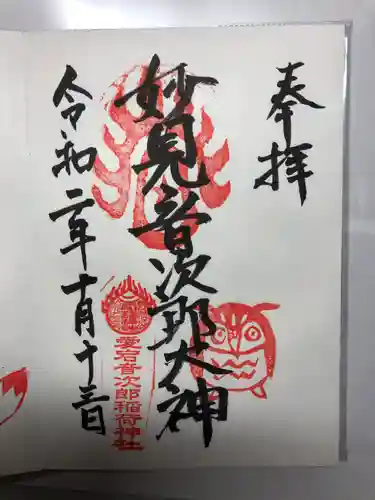 奉拝
妙見音次郎大神
愛宕音次郎稲荷神社
令和二年十月十三日